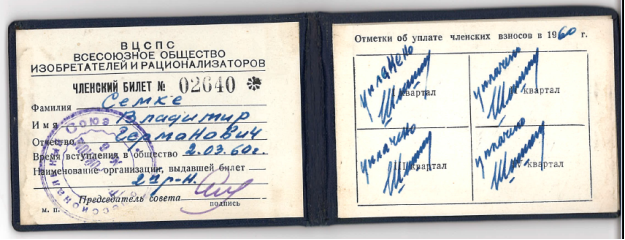 ВЦСПС
ВСЕСОЮЗНОЕ ОБЩЕСТВО
ИЗОБРЕТАТЕЛЕЙ И РАЦИОНАЛИЗАТОРОВ
ЧЛЕНСКИЙ БИЛЕТ № 02640
Фамилия Семке
Имя Владимир
Отчество Германович
Время вступления в общество 2.03.60г.
Наименование организации, выдавшей билет
Председатель совета
подпись
м. п.
Отметки об уплате членских взносов в 1960 г.
уплачено
квартал
уплачено
квартал
уплачено
квартал
уплачено
квартал